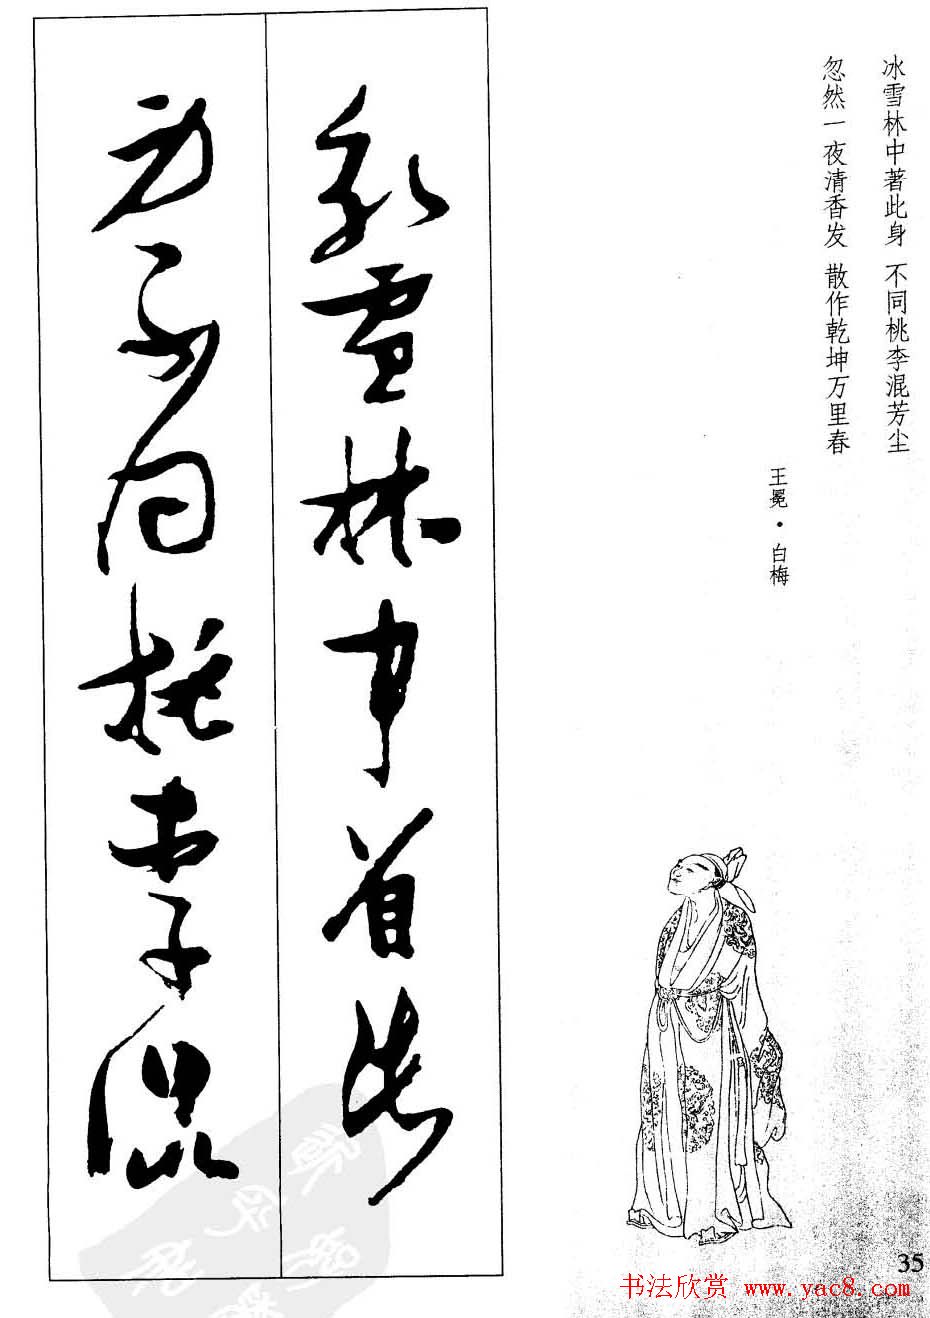 冰雪林中著此身 不同桃李混芳尘
忽然一夜清香发 散作乾坤万里春
王冕·白梅
冰雪林中著此
身不同桃李混
35
书法欣赏 www.yac8.com